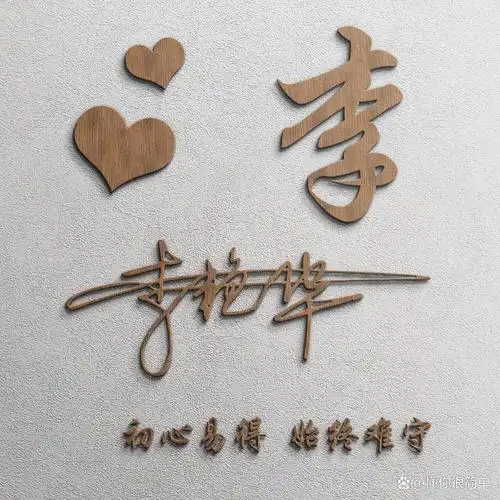 李
李艳华
初心易得 始终难守
@吓你很简单